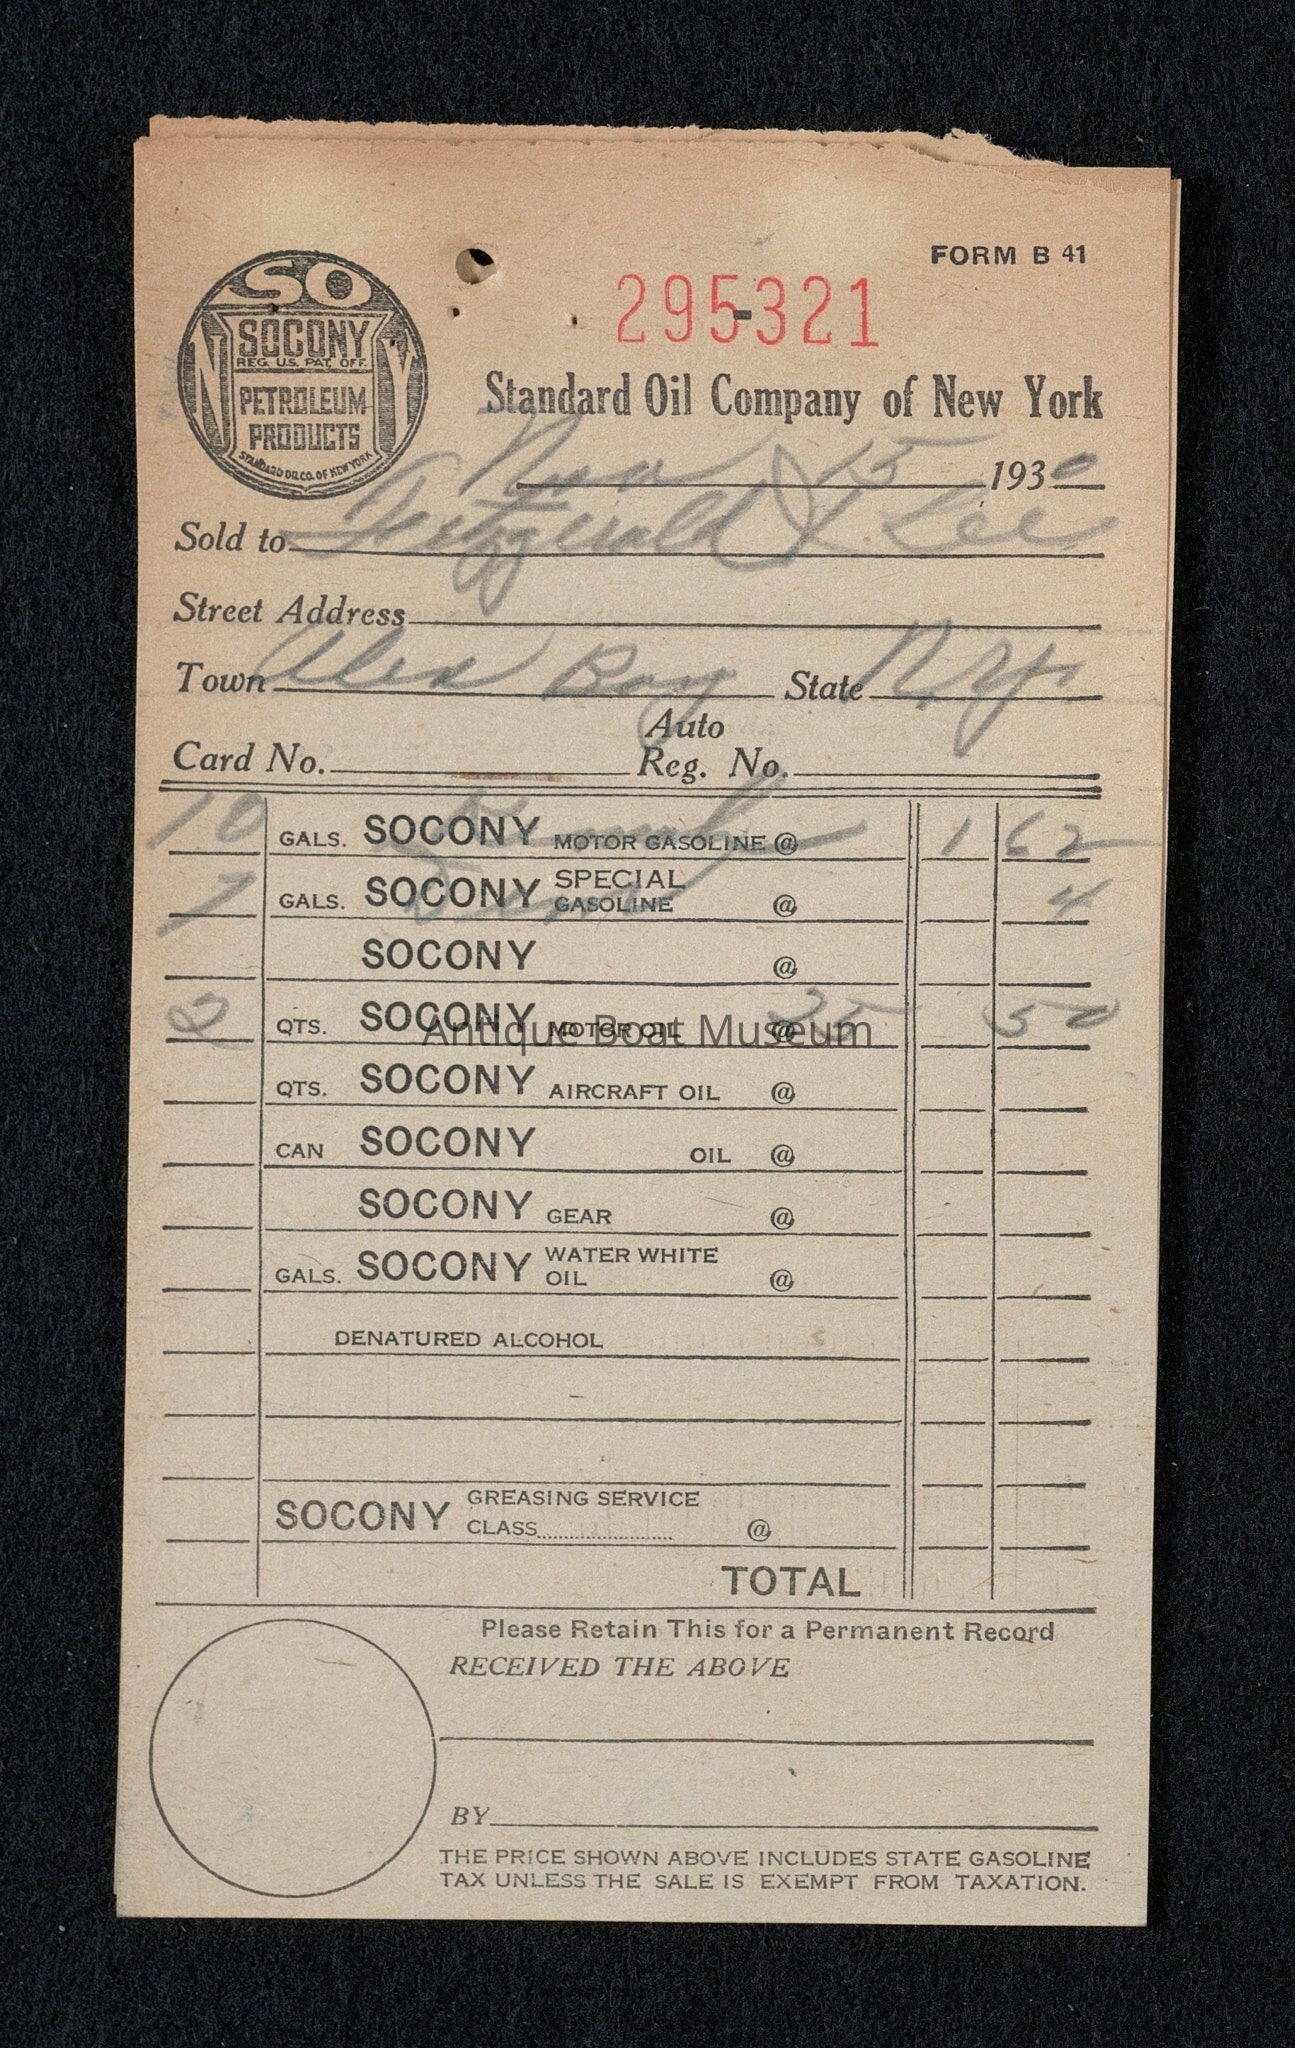 FORM B 41
295-321
SO
N Y
SOCONY
REG. U.S. PAT. OFF.
PETROLEUM
PRODUCTS
STANDARD OIL CO. OF NEW YORK
Standard Oil Company of New York
Nov 15 1930
Sold to Fitzgerald & Lee
Street Address
Town Alex Bay State N.Y.
Card No. Auto Reg. No.
10 GALS. SOCONY MOTOR GASOLINE @ 1 62
GALS. SOCONY SPECIAL GASOLINE @ 4
SOCONY @
2 QTS. SOCONY MOTOR OIL @ 25 50
Antique Boat Museum
QTS. SOCONY AIRCRAFT OIL @
CAN SOCONY OIL @
SOCONY GEAR @
GALS. SOCONY WATER WHITE OIL @
DENATURED ALCOHOL
SOCONY GREASING SERVICE CLASS @
TOTAL
Please Retain This for a Permanent Record
RECEIVED THE ABOVE
BY
THE PRICE SHOWN ABOVE INCLUDES STATE GASOLINE
TAX UNLESS THE SALE IS EXEMPT FROM TAXATION.